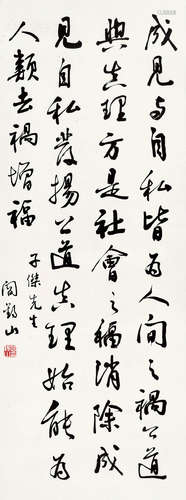 成見與自私皆為人間之禍公道
與真理方是社會之福消除成
見自私發揚公道真理始能為
人類去禍增福
子傑先生
閻錫山